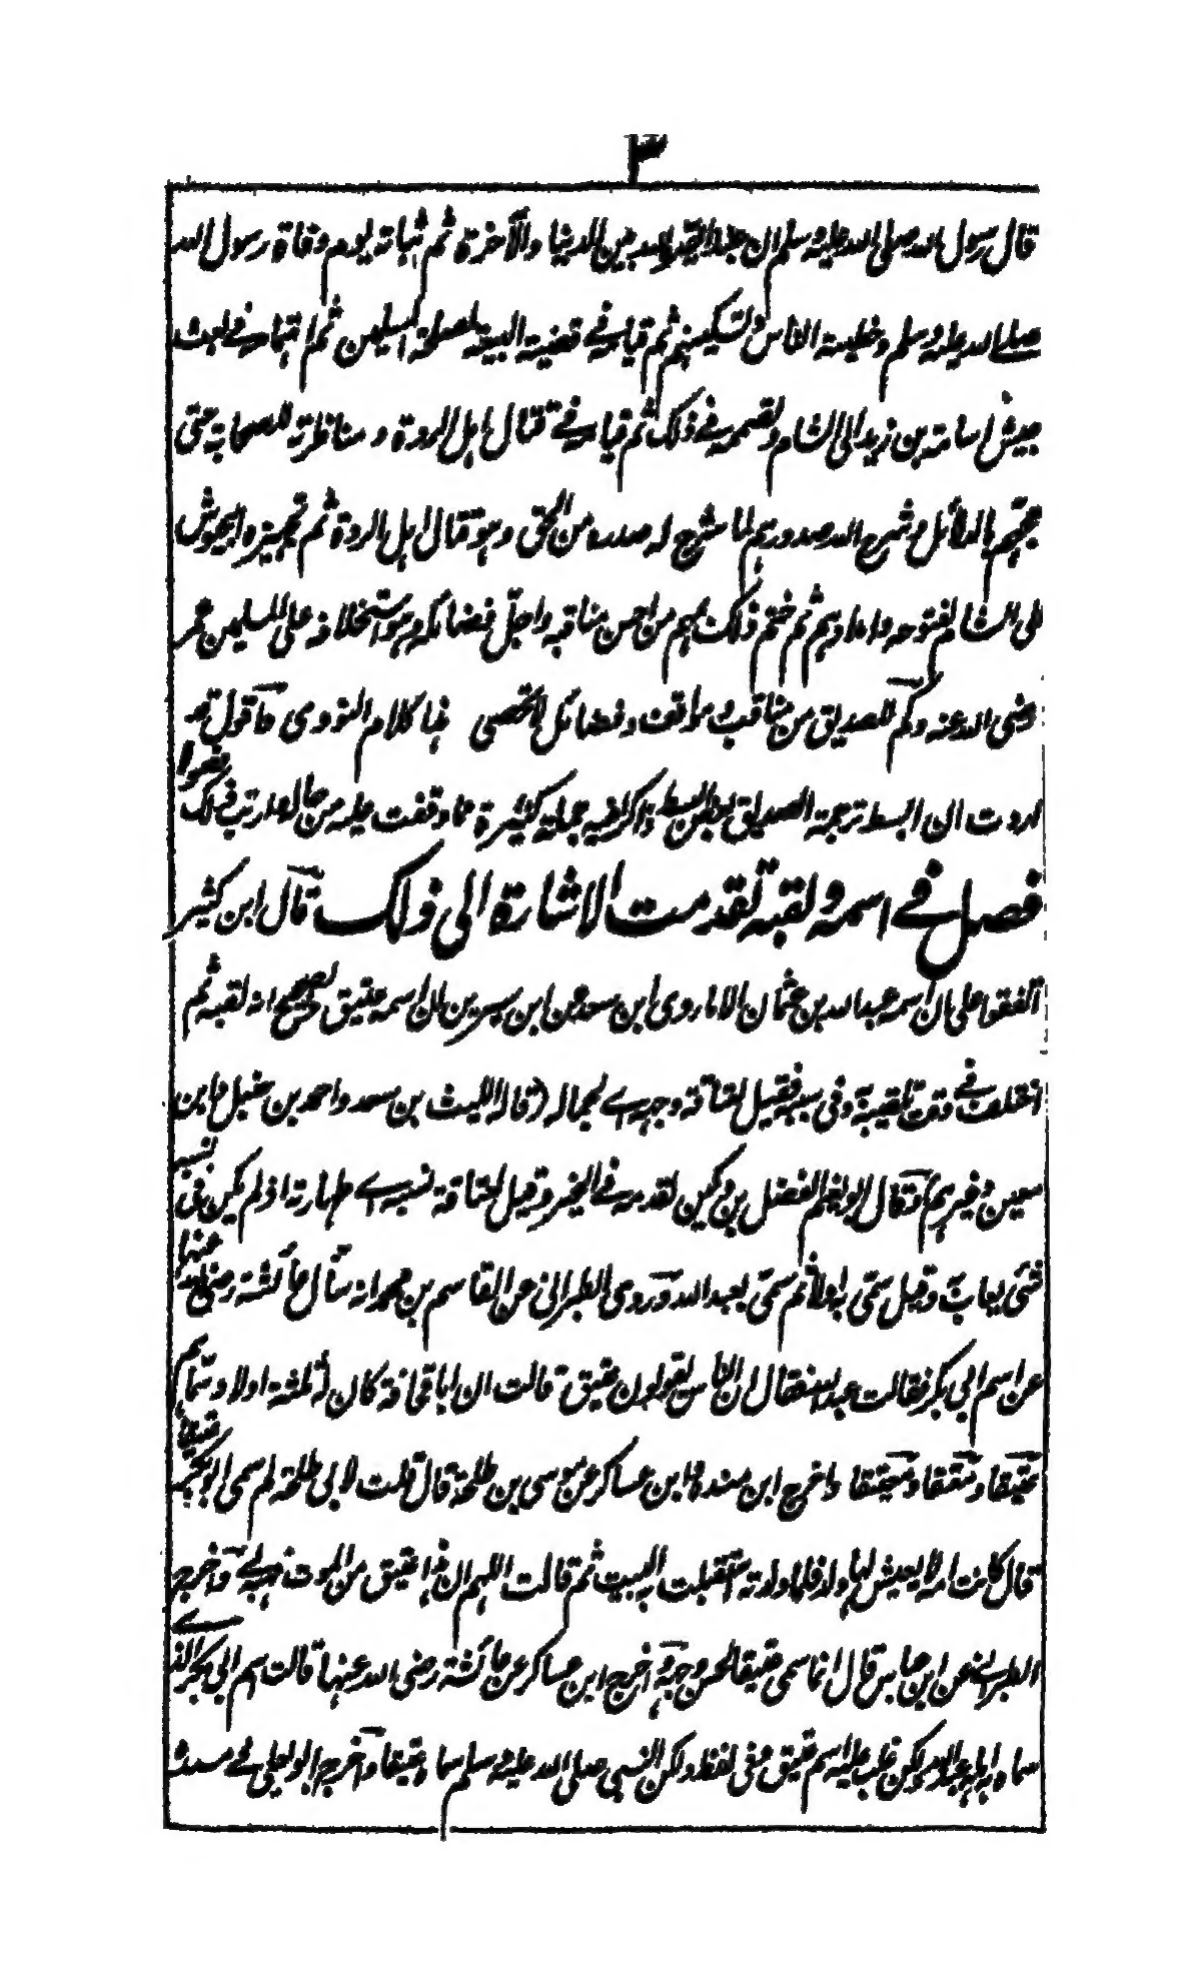 ٣
قال رسول الله صلى الله عليه وسلم ان عبدا خيره الله بين الدنيا والآخرة ثم ثباته يوم وفاة رسول الله
صلے الله عليه وسلم وخطبته الناس وتسكينهم ثم قيامه فے قضية البيعة لمصلحة المسلمين ثم اهتمامه فے بعث
جيش اسامة بن زيد الى الشام وتصميمه فے ذلك ثم قيامه فے قتال اهل الردة ومناظرته للصحابة حتى
حجهم بالدلائل وشرح الله صدورهم لما شرح له صدره من الحق وهو قتال اهل الردة ثم تجهيزه الجيوش
الى الشام لفتوحه وامدادهم ثم ختم ذلك بمهم من احسن مناقبه واجل فضائله وهو استخلافه على المسلمين عمر
رضى الله عنه وكم للصديق من مناقب ومواقف وفضائل لا تحصى هذا كلام النووى فاقول قد
اردت ان ابسط ترجمة الصديق بعض البسط ذاكرا فيه جملة كثيرة مما وقفت عليه من حاله وارتب ذلك فصولا
فصل فے اسمه ولقبه تقدمت الاشارة الى ذلك قال ابن كثير
اتفقوا على ان اسمه عبد الله بن عثمان الا ما روى ابن سعد عن ابن سيرين ان اسمه عتيق والصحيح انه لقبه ثم
اختلف فے وقت تلقيبه وفى سببه فقيل لعتاقة وجهه اے لجماله (قاله الليث بن سعد واحمد بن حنبل وابن
معين وغيرهم) وقال ابو نعيم الفضل بن دكين لقدمه فے الخير وقيل لعتاقة نسبه اے طهارته اذ لم يكن فى نسبه
شئ يعاب به وقيل سمى به اولا ثم سمى بعبد الله وروى الطبرانى عن القاسم بن محمد انه سأل عائشة رضى الله عنها
عن اسم ابى بكر فقالت عبد الله فقال ان الناس يقولون عتيق قالت ان ابا قحافة كان له ثلثة اولاد سماهم
عتيقا ومعتقا ومعيتقا واخرج ابن منده وابن عساكر عن موسى بن طلحة قال قلت لابى طلحة لم سمى ابو بكر عتيقا
قال كانت امه لا يعيش لها ولد فلما ولدته استقبلت به البيت ثم قالت اللهم ان هذا عتيق من الموت فهبه لے واخرج
الطبرانى عن ابن عباس قال انما سمى عتيقا لحسن وجهه واخرج ابن عساكر عن عائشة رضى الله عنها قالت اسم ابى بكر الذے
سماه به اهله عبد الله ولكن غلب عليه اسم عتيق وفى لفظ ولكن النبى صلى الله عليه وسلم سماه عتيقا واخرج ابو يعلى فے مسنده